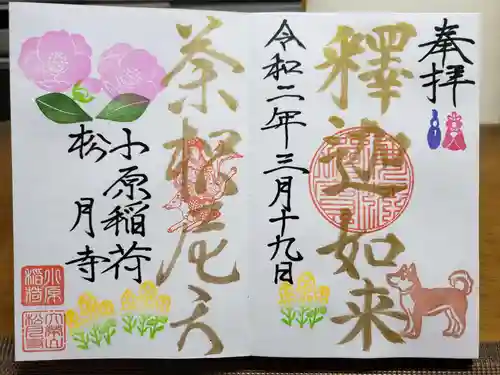 奉拝
釋迦如来
令和二年三月十九日
荼枳尼天
小原稲荷
松月寺
小原
稲荷